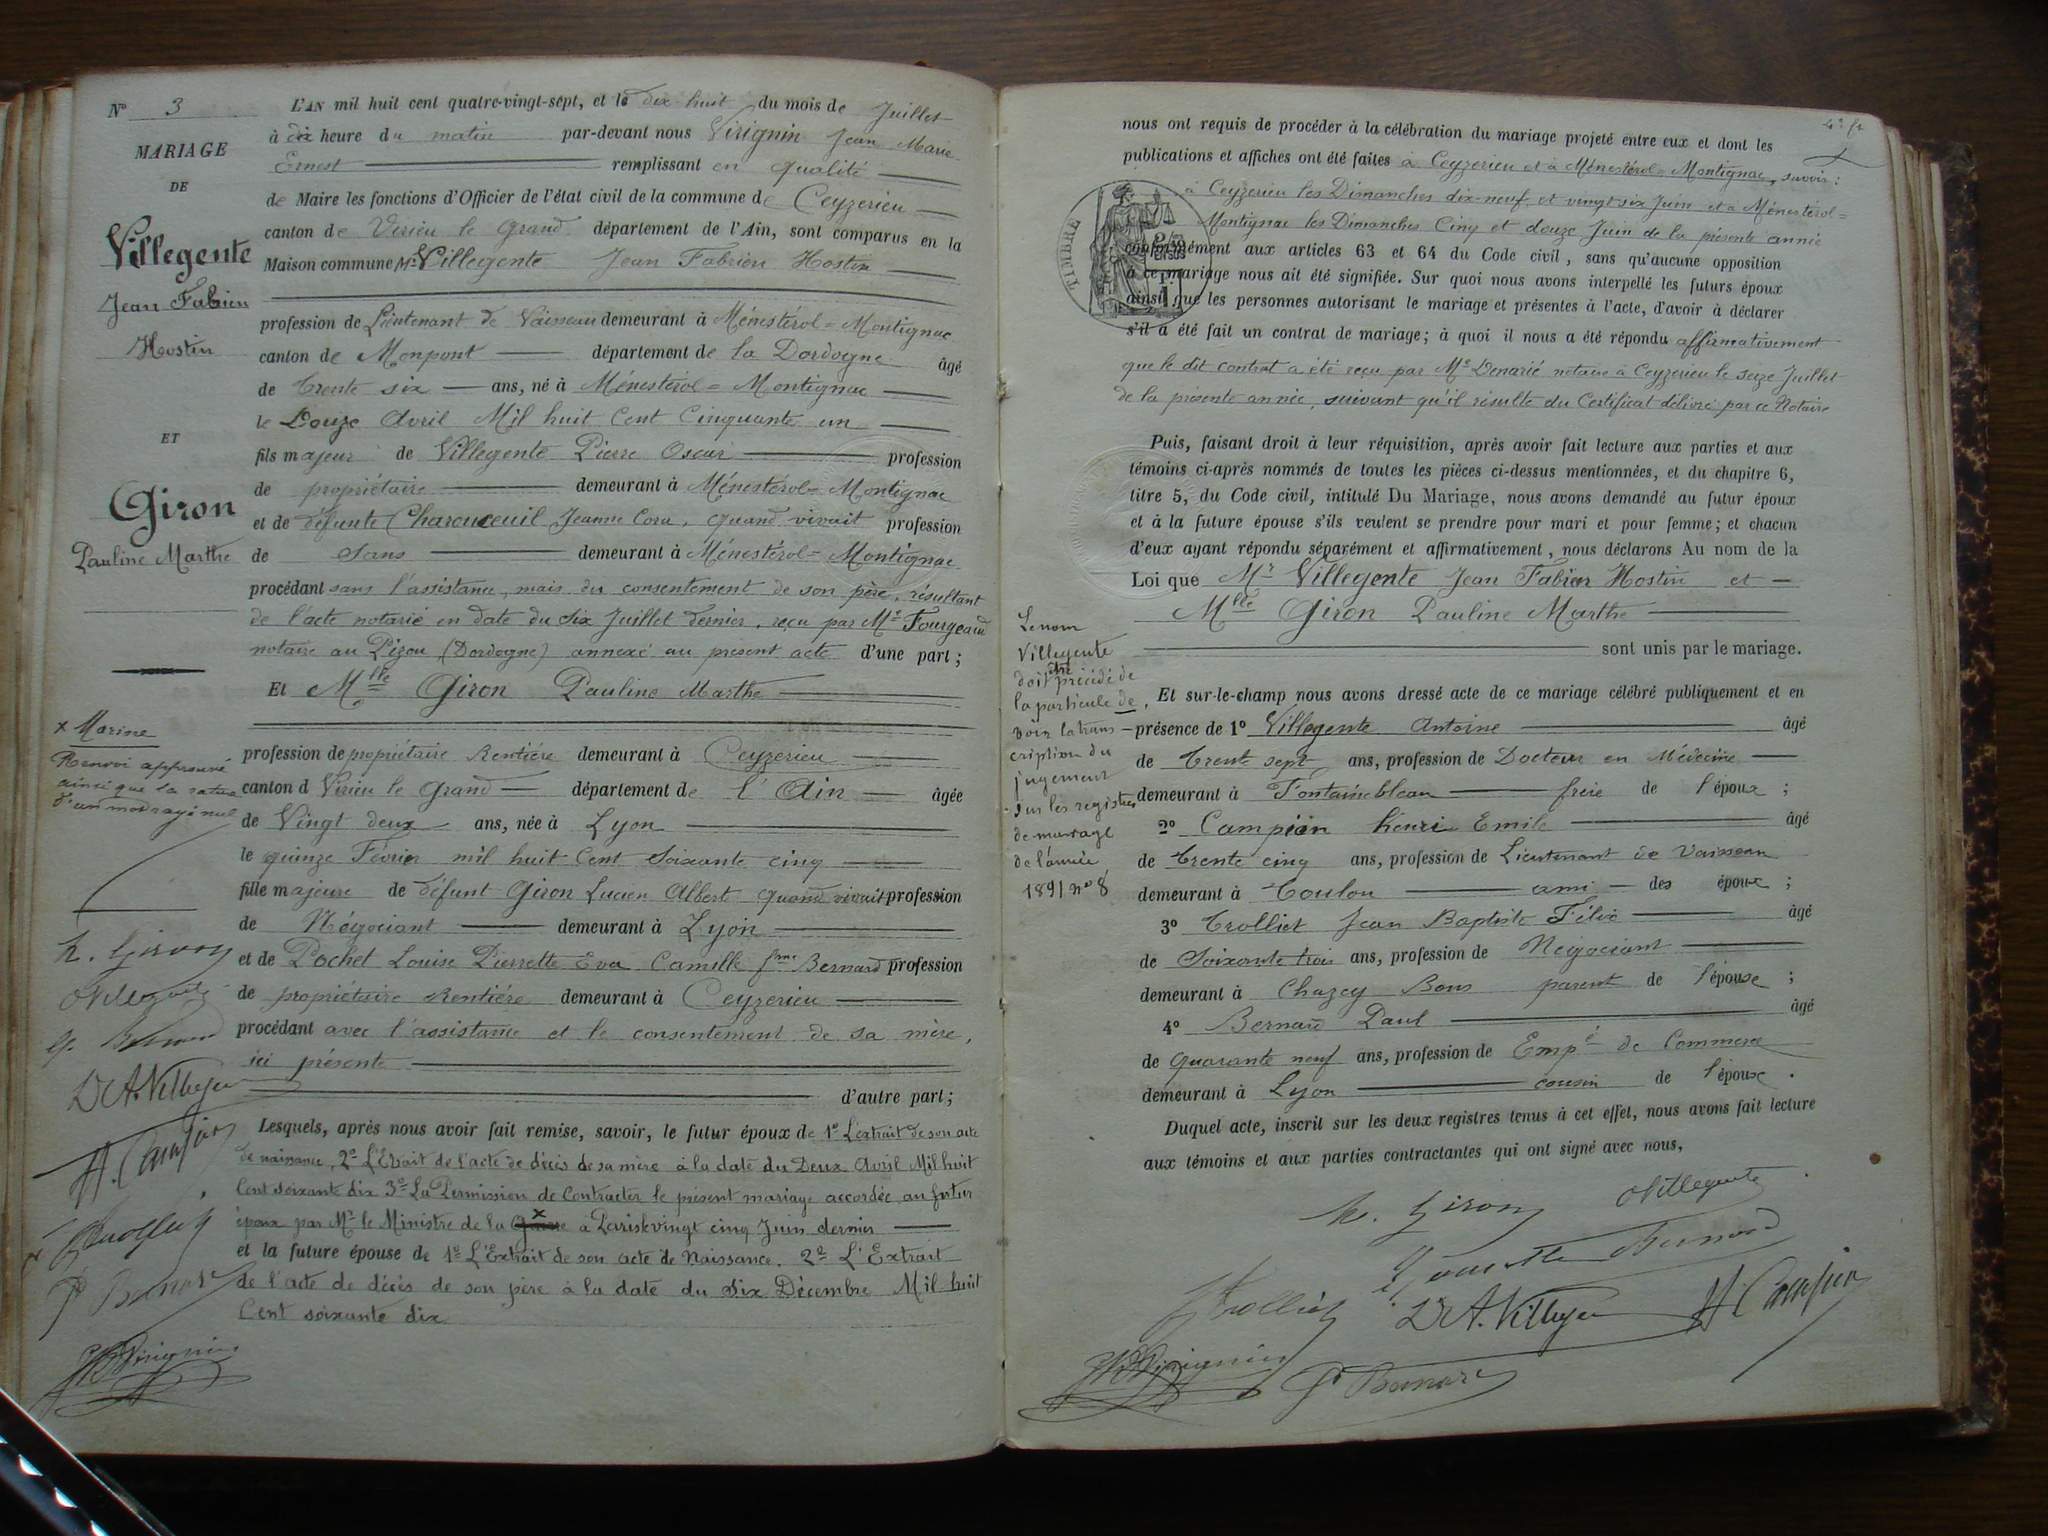 N° 3
MARIAGE
DE
Villegente
Jean Fabien
Hostin
ET
Giron
Pauline Marthe
L'AN mil huit cent quatre-vingt-sept, et le dix huit du mois de Juillet
à dix heure du matin par-devant nous Virignin Jean Marie
Ernest remplissant en qualité
de Maire les fonctions d'Officier de l'état civil de la commune de Ceyzerieu
canton de Virieu le Grand département de l'Ain, sont comparus en la
Maison commune Mr Villegente Jean Fabien Hostin
profession de Lieutenant de Vaisseau demeurant à Ménestérol=Montignac
canton de Monpont département de la Dordogne âgé
de Trente six ans, né à Ménestérol=Montignac
le Douze Avril Mil huit Cent Cinquante un
fils majeur de Villegente Pierre Oscar profession
de propriétaire demeurant à Ménestérol=Montignac
et de défunte Charouceuil Jeanne Cora, quand vivait profession
de Sans demeurant à Ménestérol=Montignac
procédant sans l'assistance, mais du consentement de son père, résultant
de l'acte notarié en date du Six Juillet dernier, reçu par Me Fourgeaud
notaire au Pizou (Dordogne) annexé au présent acte d'une part;
Et Mlle Giron Pauline Marthe
profession de propriétaire Rentière demeurant à Ceyzerieu
canton d Virieu le Grand département de l'Ain âgée
de Vingt deux ans, née à Lyon
le quinze Février mil huit Cent Soixante cinq
fille majeure de défunt Giron Lucien Albert quand vivait profession
de Négociant demeurant à Lyon
et de Pochet Louise Pierrette Eva Camille fme Bernard profession
de propriétaire Rentière demeurant à Ceyzerieu
procédant avec l'assistance et le consentement de sa mère,
ici présente
d'autre part;
Lesquels, après nous avoir fait remise, savoir, le futur époux de 1° L'extrait de son acte
de naissance, 2° L'Extrait de l'acte de décès de sa mère à la date du Deux Avril Mil huit
Cent soixante dix 3° La Permission de Contracter le présent mariage accordée au futur
époux par Mr le Ministre de la Guerre x à Paris le vingt cinq Juin dernier
et la future épouse de 1° L'Extrait de son acte de Naissance. 2° L'Extrait
de l'acte de décès de son père à la date du Six Décembre Mil huit
Cent soixante dix
x Marine
Renvoi approuvé
ainsi que la rature
d'un mot rayé nul
h. Giron
Villegente
Dr A. Villegente
H. Campion
Trolliet
P. Bernard
Virignin
nous ont requis de procéder à la célébration du mariage projeté entre eux et dont les
publications et affiches ont été faites à Ceyzerieu et à Ménestérol=Montignac, savoir:
à Ceyzerieu les Dimanches dix-neuf et vingt six Juin et à Ménestérol=
Montignac les Dimanches Cinq et douze Juin de la présente année
TIMBRE
conformément aux articles 63 et 64 du Code civil, sans qu'aucune opposition
à ce mariage nous ait été signifiée. Sur quoi nous avons interpellé les futurs époux
ainsi que les personnes autorisant le mariage et présentes à l'acte, d'avoir à déclarer
s'il a été fait un contrat de mariage; à quoi il nous a été répondu affirmativement
que le dit contrat a été reçu par Me Denarié notaire à Ceyzerieu le seize Juillet
de la présente année, suivant qu'il résulte du Certificat délivré par ce Notaire
Puis, faisant droit à leur réquisition, après avoir fait lecture aux parties et aux
témoins ci-après nommés de toutes les pièces ci-dessus mentionnées, et du chapitre 6,
titre 5, du Code civil, intitulé Du Mariage, nous avons demandé au futur époux
et à la future épouse s'ils veulent se prendre pour mari et pour femme; et chacun
d'eux ayant répondu séparément et affirmativement, nous déclarons Au nom de la
Loi que Mr Villegente Jean Fabien Hostin et
Mlle Giron Pauline Marthe
sont unis par le mariage.
Et sur-le-champ nous avons dressé acte de ce mariage célébré publiquement et en
présence de 1° Villegente Antoine âgé
de Trente sept ans, profession de Docteur en Médecine
demeurant à Fontainebleau frère de l'époux;
2° Campion Henri Emile âgé
de Trente cinq ans, profession de Lieutenant de Vaisseau
demeurant à Toulon ami des époux;
3° Trolliet Jean Baptiste Félix âgé
de Soixante trois ans, profession de Négociant
demeurant à Chazey Bons parent de l'épouse;
4° Bernard Paul âgé
de quarante neuf ans, profession de Empé de Commerce
demeurant à Lyon cousin de l'épouse.
Duquel acte, inscrit sur les deux registres tenus à cet effet, nous avons fait lecture
aux témoins et aux parties contractantes qui ont signé avec nous,
Le nom
Villegente
doit être précédé de
la particule de,
voir la trans-
cription du
jugement
sur les registres
de mariage
de l'année
1891 n° 8
h. Giron
Villegente
Bernard
Trolliet
Dr A. Villegente
H. Campion
Virignin
P. Bernard